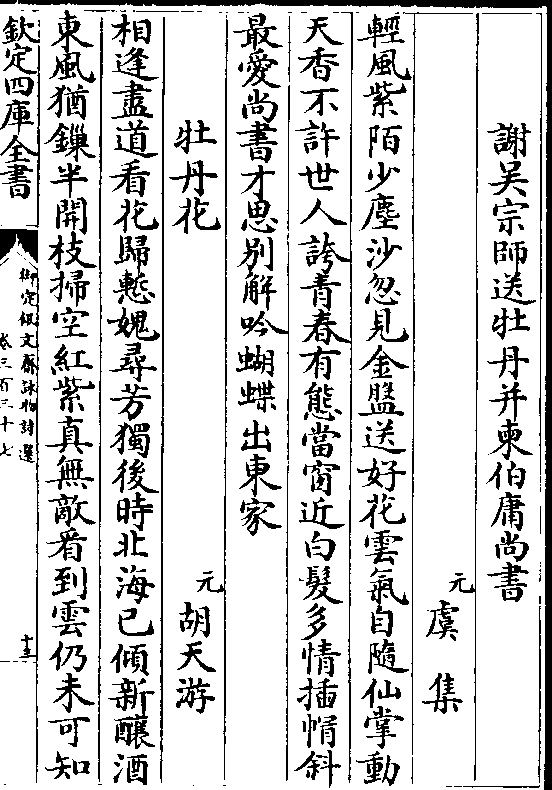 謝吳宗師送牡丹并柬伯庸尚書
元虞集
輕風紫陌少塵沙忽見金盤送好花雲氣自隨仙掌動
天香不許世人誇青春有態當窗近白髮多情插㡌斜
最愛尚書才思别解吟蝴蝶出東家
牡丹花
元胡天游
相逢盡道看花歸慙媿尋芳獨後時北海已傾新釀酒
東風猶鏁半開枝掃空紅紫真無敵看到雲仍未可知
欽定四庫全書
御定佩文齋詠物詩選
卷三百三十七
十三